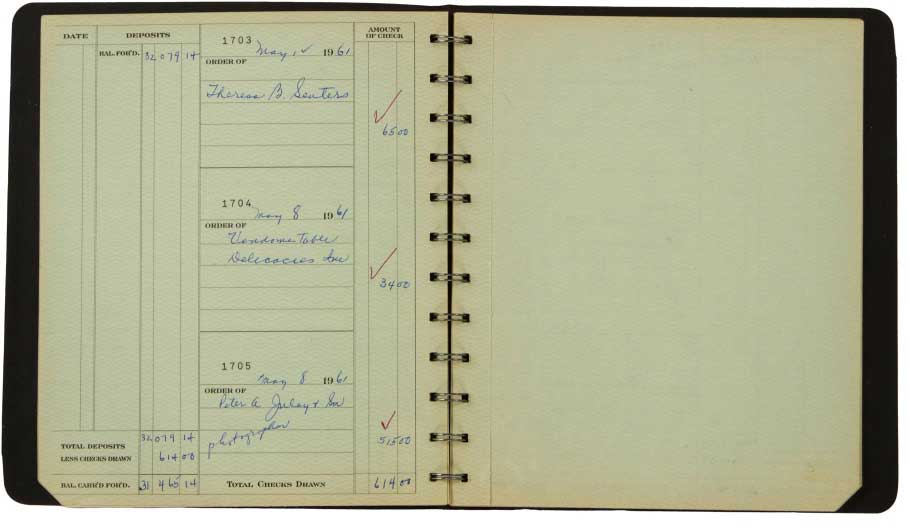 DATE DEPOSITS AMOUNT OF CHECK
BAL. FOR'D. 32 079 14
1703
May 1 1961
ORDER OF
Theresa B. Senters
65 00
1704
May 8 1961
ORDER OF
Vendome Table
Delicacies Inc
34 00
1705
May 8 1961
ORDER OF
Peter A. Juley + Son
photographer
515 00
TOTAL DEPOSITS 32 079 14
LESS CHECKS DRAWN 614 00
BAL. CARR'D FOR'D. 31 465 14 TOTAL CHECKS DRAWN 614 00